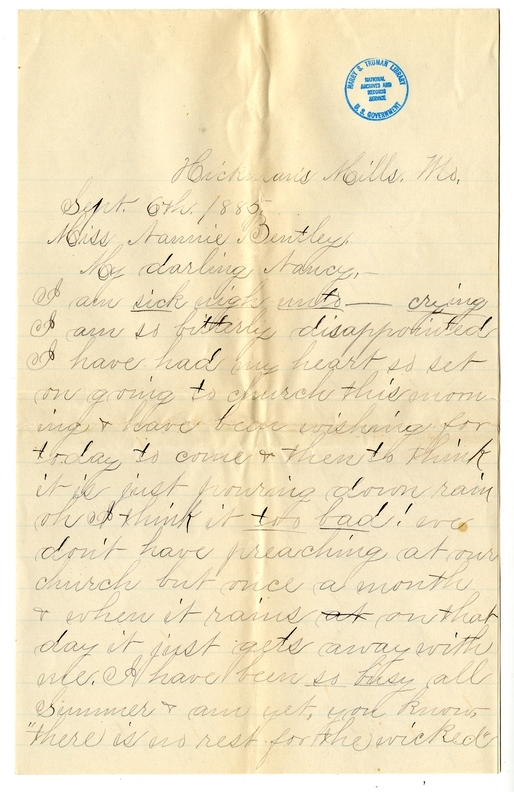 HARRY S. TRUMAN LIBRARY
NATIONAL
ARCHIVES AND
RECORDS
SERVICE
U. S. GOVERNMENT
Hickmans Mills. Mo.
Sept. 6th. 1885.
Miss Nannie Bentley.
My darling Nancy,-
I am sick nigh unto — crying
I am so bitterly disappointed
I have had my heart so set
on going to church this morn
ing & have been wishing for
today to come & then to think
it is just pouring down rain
oh I think it too bad! we
don't have preaching at our
church but once a month
& when it rains at on that
day it just gets away with
me. I have been so busy all
Summer & am yet, you know
"there is no rest for the wicked"